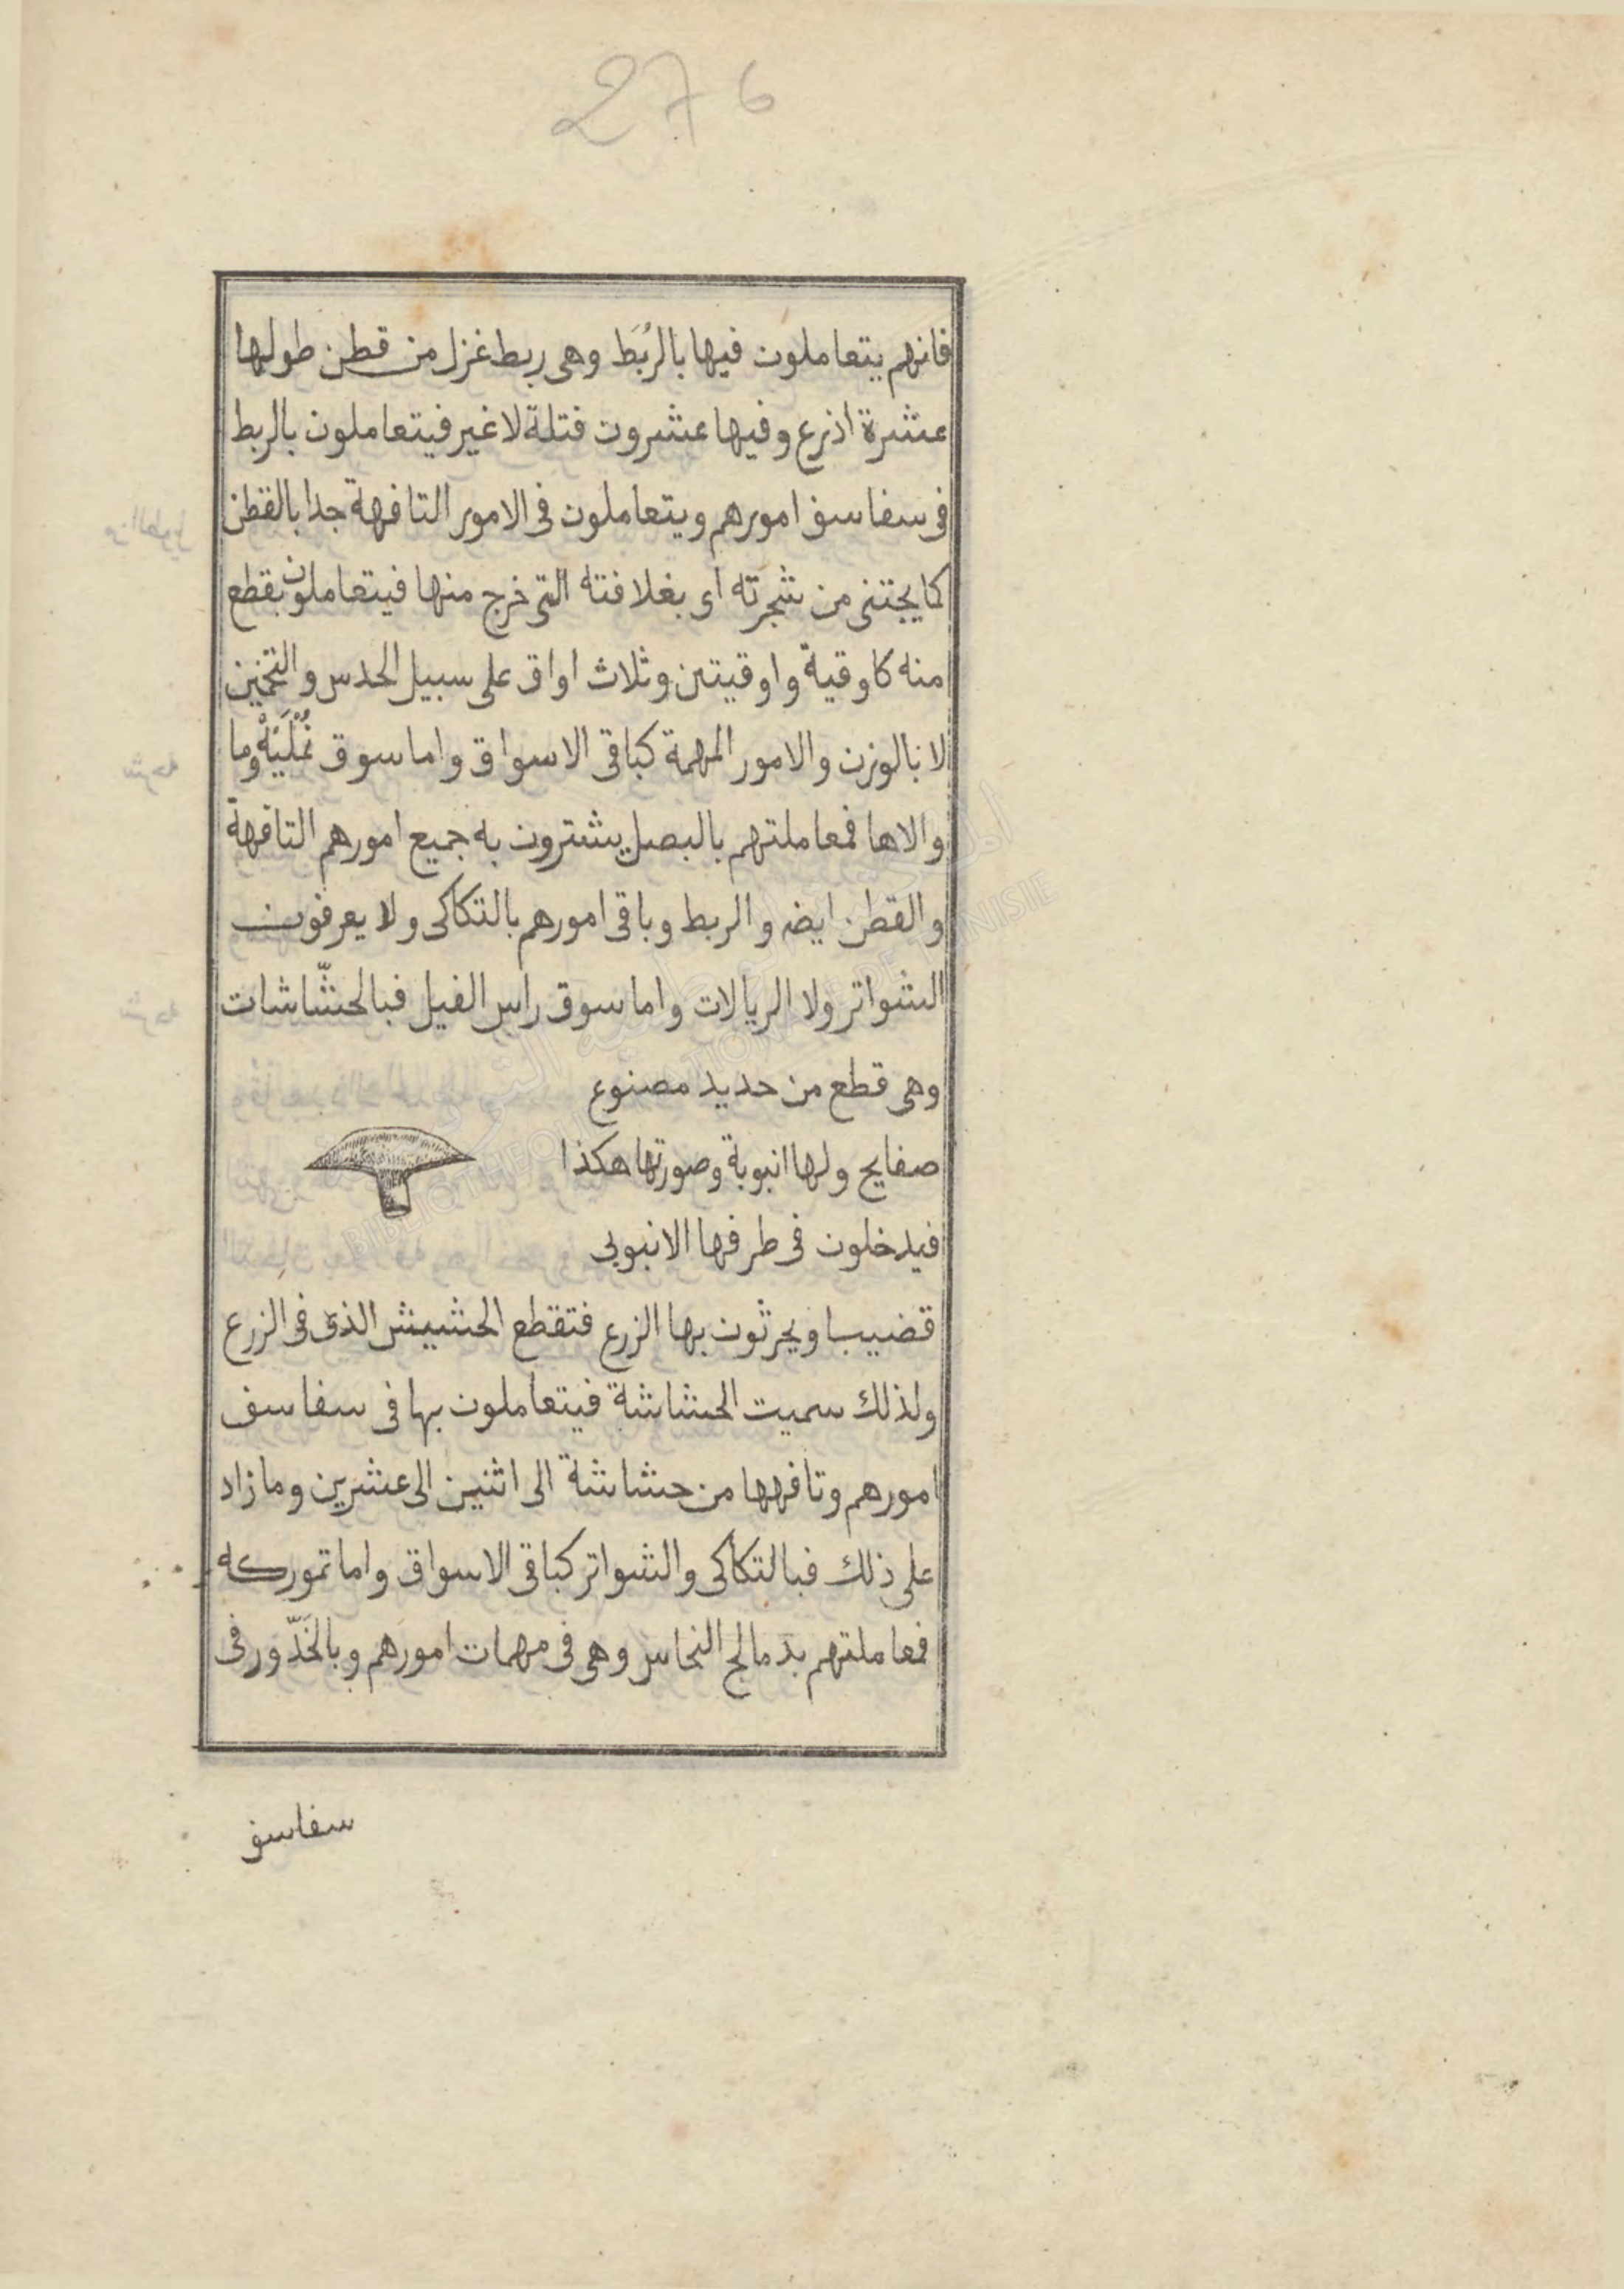 276
فانهم يتعاملون فيها بالرُبَط وهى ربط غزل من قطن طولها
عشرة اذرع وفيها عشرون فتلة لا غير فيتعاملون بالربط
فى سفاسف امورهم ويتعاملون فى الامور التافهة جدا بالقطن
كما يجتنى من شجرته اى بغلافته التى خرج منها فيتعاملون بقطع
منه كاوقية واوقيتين وثلاث اواق على سبيل الحدس والتخمين
لا بالوزن والامور المهمة كباقى الاسواق واما سوق نُمْلَيَهْ وما
والاها فمعاملتهم بالبصل يشترون به جميع امورهم التافهة
والقطن ايضه والربط وباقى امورهم بالتكاكى ولا يعرفون
الشواتر ولا الريالات واما سوق راس الفيل فبالحشّاشات
وهى قطع من حديد مصنوع
صفايح ولها انبوبة وصورتها هكذا
فيدخلون فى طرفها الانبوبى
قضيبا ويحرثون بها الزرع فتقطع الحشيش الذى فى الزرع
ولذلك سميت الحشاشة فيتعاملون بها فى سفاسف
امورهم وتافهها من حشاشة الى اثنين الى عشرين وما زاد
على ذلك فبالتكاكى والشواتر كباقى الاسواق واما تموركه
فمعاملتهم بدمالج النحاس وهى فى مهمات امورهم وبالخَدّور فى
سفاسف
المكتبة الوطنية التونسية
BIBLIOTHEQUE NATIONALE DE TUNISIE